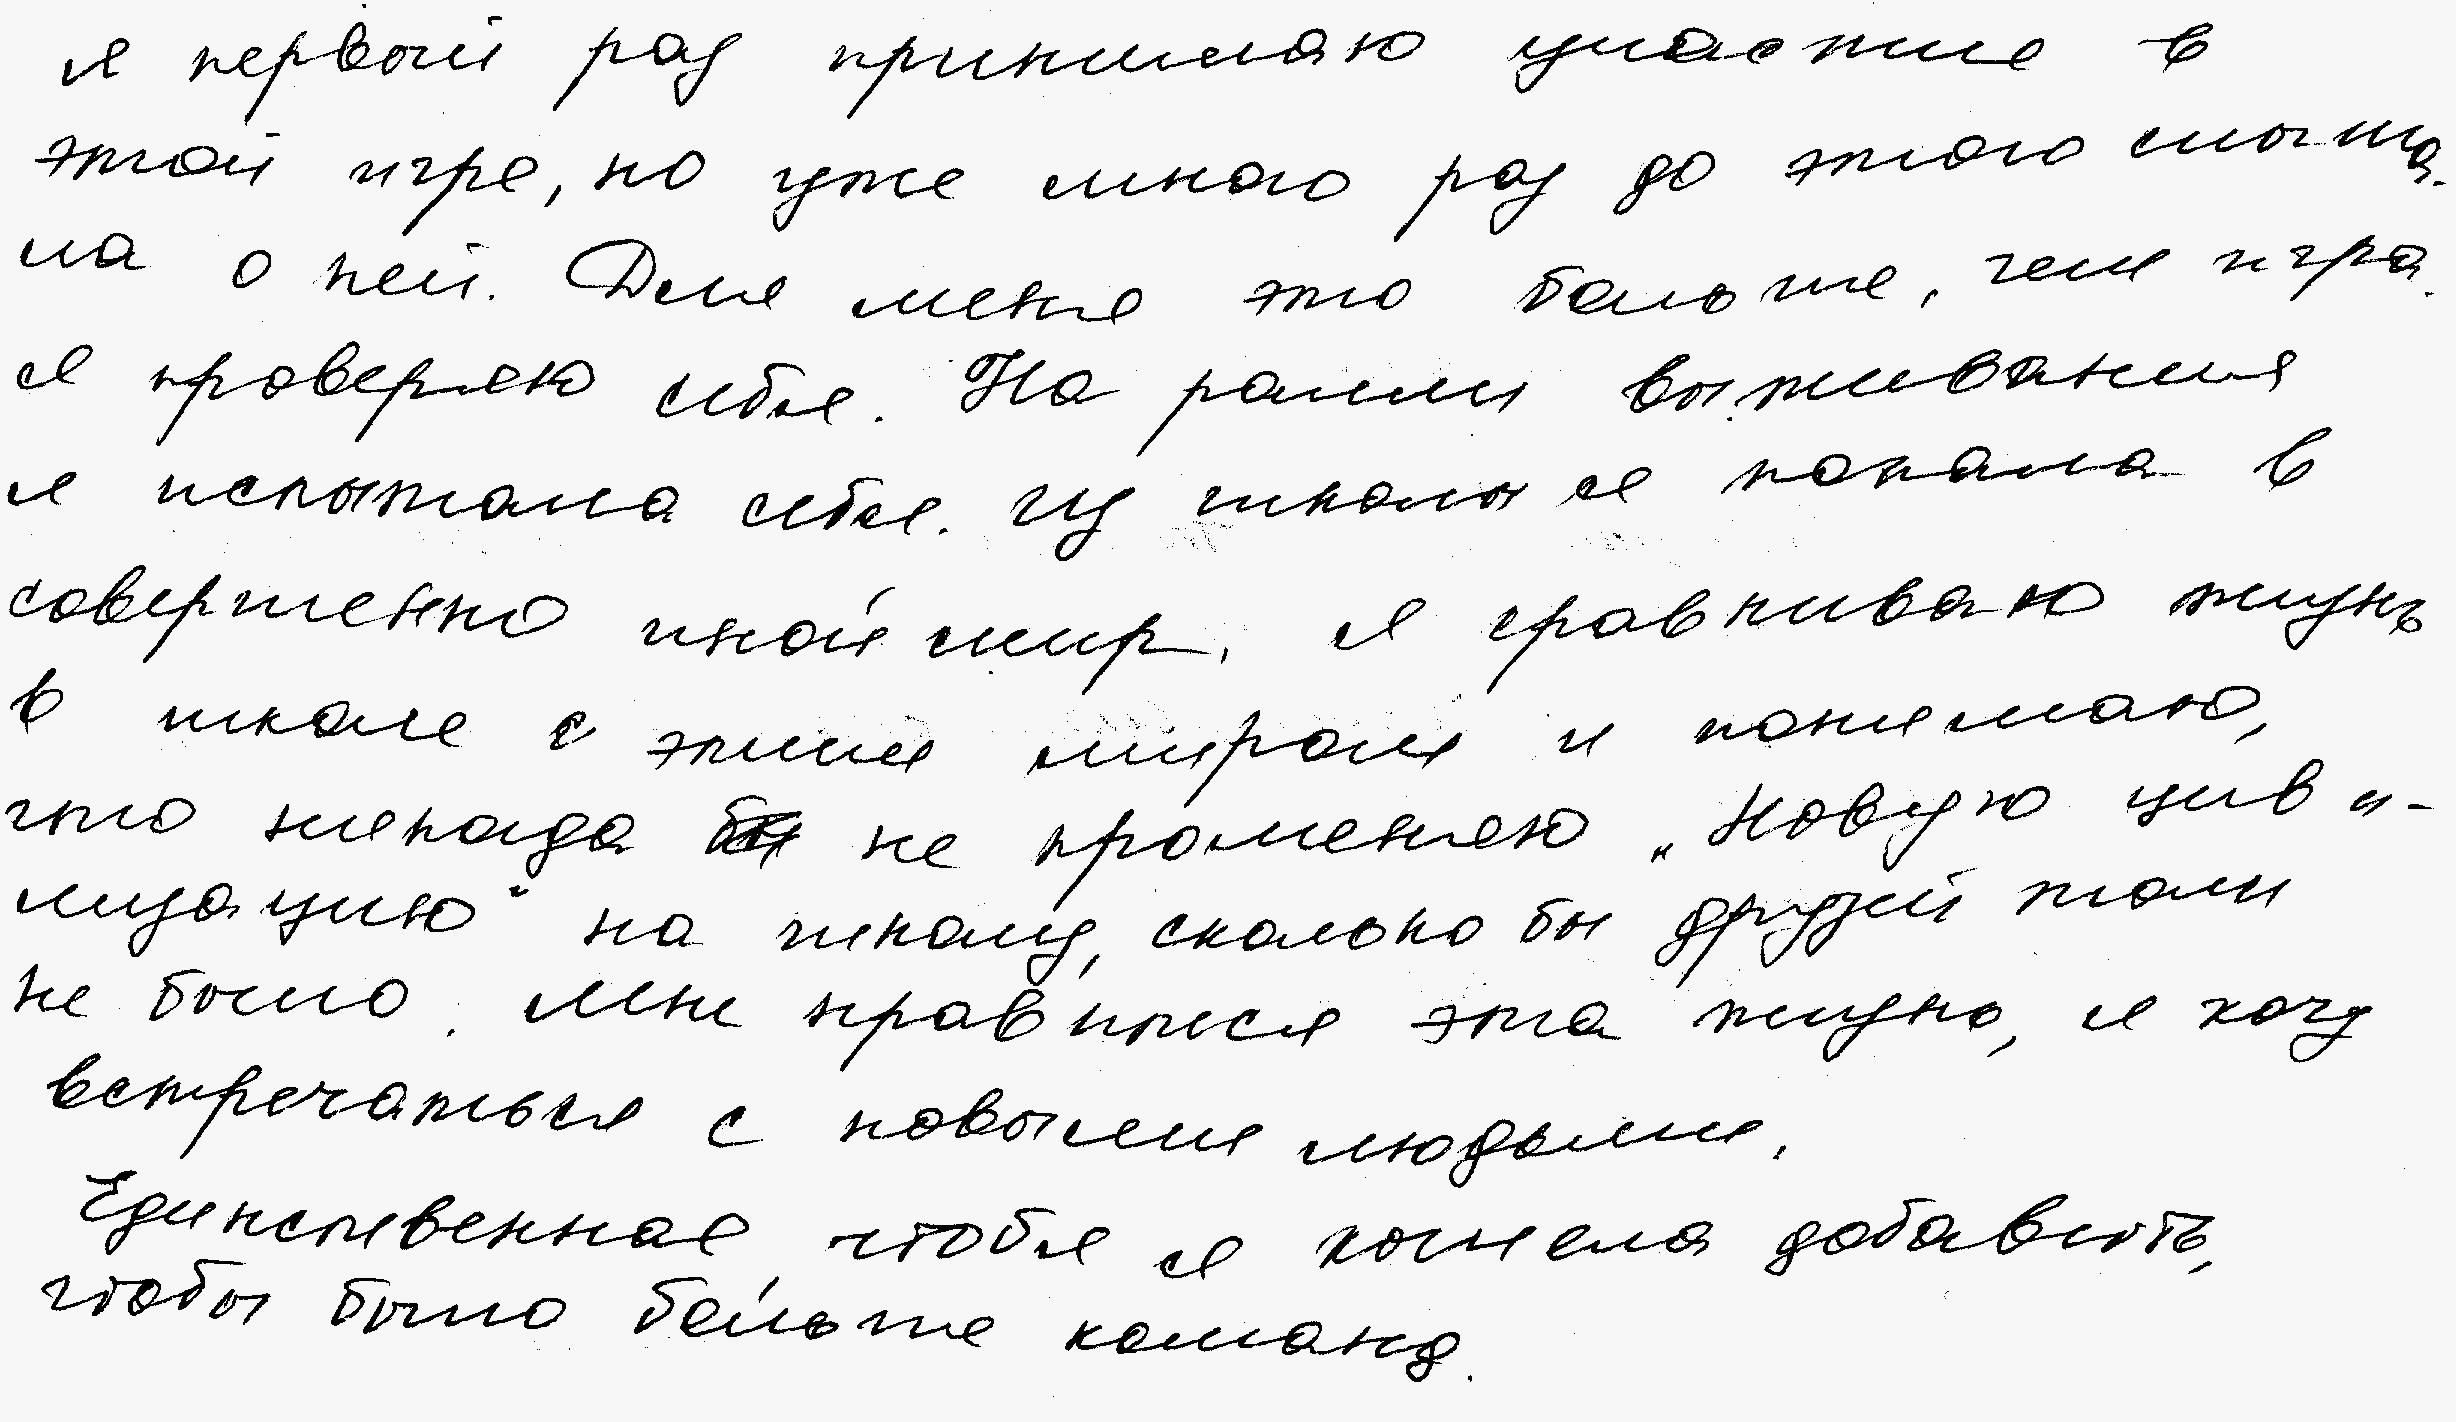 я первый раз принимаю участие в
этой игре, но уже много раз до этого слыша-
ла о ней. Для меня это больше, чем игра.
я проверяю себя. На ралли выживания
я испытала себя. Из школы я попала в
совершенно иной мир. я сравниваю жизнь
в школе с этим миром и понимаю,
что никогда не променяю „Новую циви-
лизацию“ на школу, сколько бы друзей там
не было. Мне нравится эта жизнь, я хочу
встречаться с новыми людьми.
Единственное, чтобы я хотела добавить,
чтобы было больше команд.